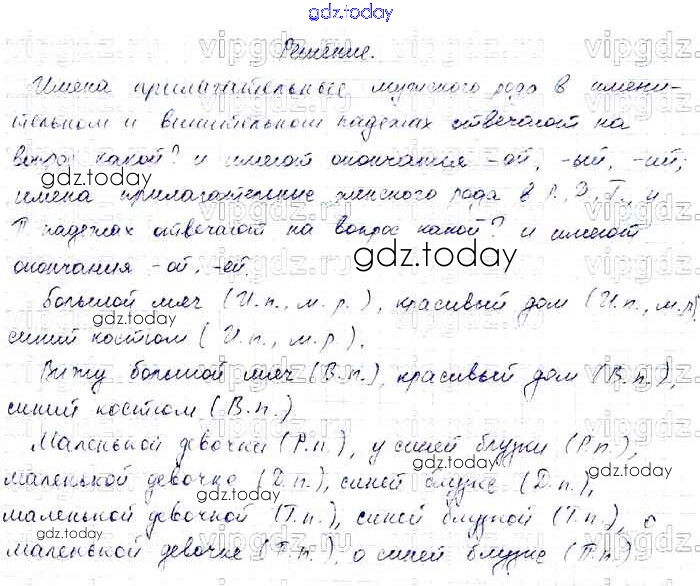 gdz.today
Решение.
Имена прилагательные мужского рода в имени-
тельном и винительном падежах отвечают на
вопрос какой? и имеют окончания -ой, -ый, -ий;
gdz.today
имена прилагательные женского рода в Р., Д., Т., и
П падежах отвечают на вопрос какой? и имеют
gdz.today
окончания -ой, -ей.
Большой мяч (И.п., м.р.), красивый дом (И.п., м.р)
gdz.today
синий костюм (И.п., м.р).
Вижу большой мяч (В.п.), красивый дом (В.п.),
gdz.today
синий костюм (В.п.)
Маленькой девочки (Р.п.), у синей блузки (Р.п),
gdz.today
маленькой девочке (Д.п.), синей блузке (Д.п),
gdz.today
маленькой девочкой (Т.п.), синей блузкой (Т.п.), о
маленькой девочке (П.п.), о синей блузке (П.п.)
gdz.today